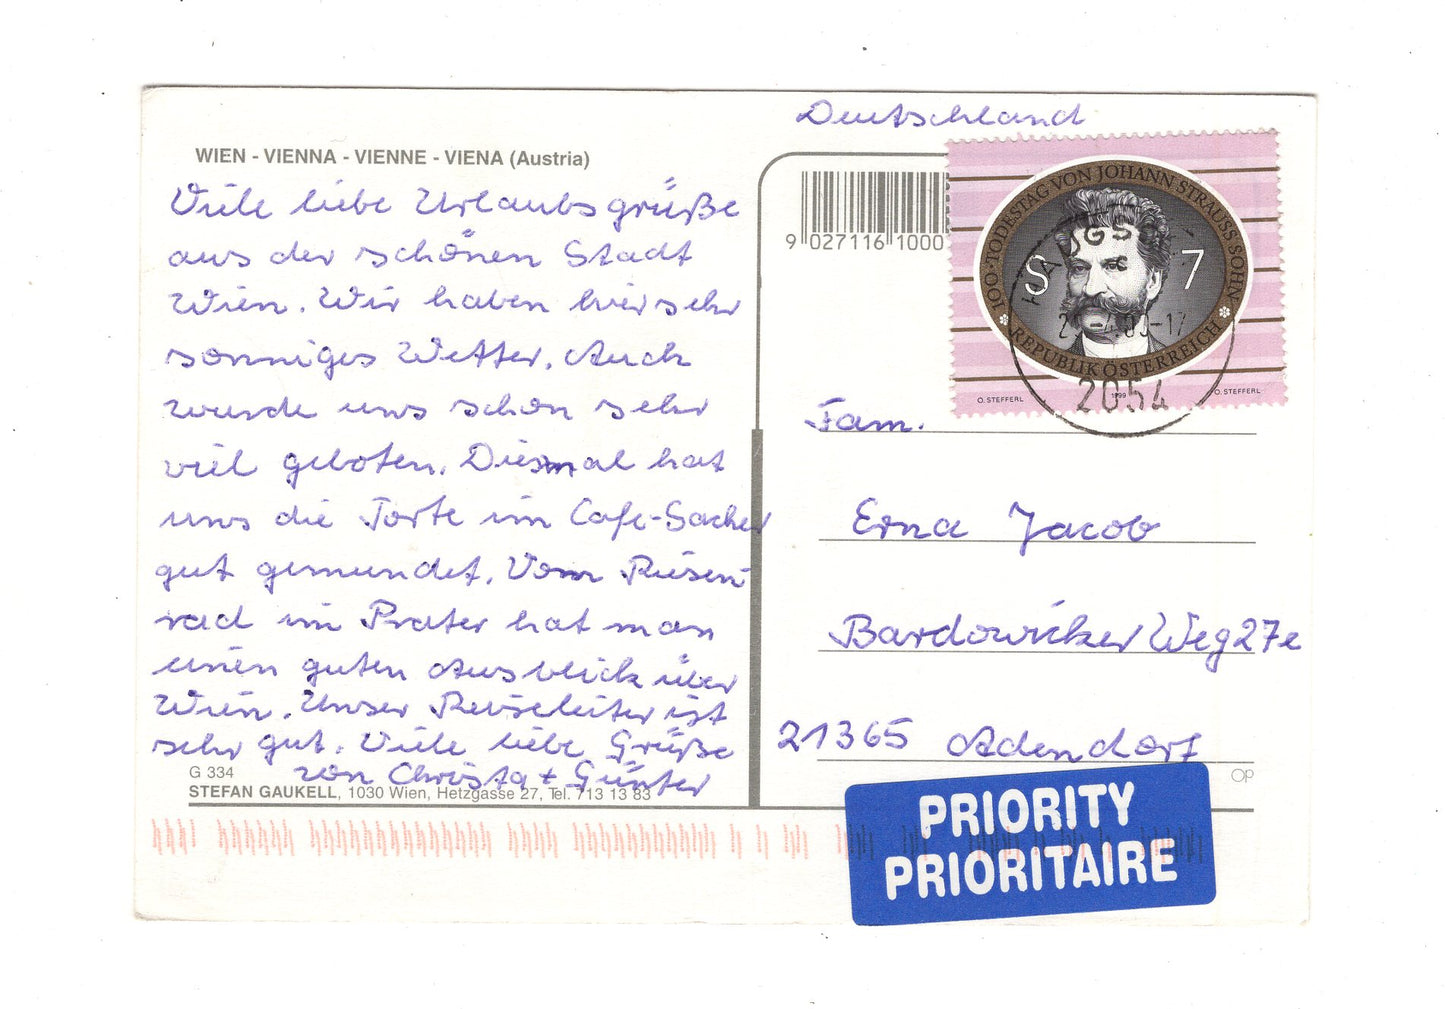 Deutschland
WIEN - VIENNA - VIENNE - VIENA (Austria)
Viele liebe Urlaubsgrüße
aus der schönen Stadt
Wien. Wir haben hier sehr
sonniges Wetter. Auch
wurde uns schon sehr
viel geboten. Diesmal hat
uns die Torte im Cafe-Sacher
gut gemundet. Vom Riesen-
rad im Prater hat man
einen guten Ausblick über
Wien. Unser Reiseleiter ist
sehr gut. Viele liebe Grüße
von Christa + Günter
G 334
STEFAN GAUKELL, 1030 Wien, Hetzgasse 27, Tel. 713 13 83
9 027116 1000
100. TODESTAG VON JOHANN STRAUSS SOHN
S 7
REPUBLIK ÖSTERREICH
O. STEFFERL 1999 O. STEFFERL
2054
Fam.
Erna Jacob
Bardowicker Weg 27e
21365 Adendorf
OP
PRIORITY
PRIORITAIRE